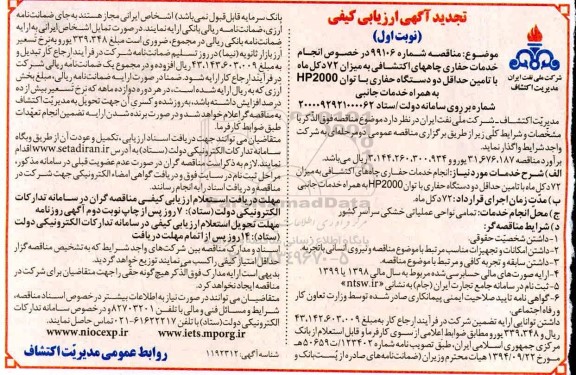 تجدید آگهی ارزیابی کیفی
(نوبت اول)
شرکت ملی نفت ایران
مدیریت اکتشاف
موضوع: مناقصه شماره ۹۹۱۰۶ در خصوص انجام
خدمات حفاری چاههای اکتشافی به میزان ۷۲ دکل ماه
با تامین حداقل دو دستگاه حفاری با توان HP2000
به همراه خدمات جانبی
شماره بر روی سامانه دولت/ستاد ۲۰۰۰۰۹۲۹۲۱۰۰۰۰۶۲
مدیریت اکتشاف ـ شرکت ملی نفت ایران در نظر دارد موضوع مناقصه فوق الذکر با
مشخصات و شرایط کلی زیر از طریق برگزاری مناقصه عمومی دو مرحله‌ای به شرکت
واجد شرایط واگذار نماید.
برآورد مناقصه ۳۱،۶۷۶،۱۸۷ یورو و ۳،۱۴۴،۲۶۰،۳۰۰،۹۳۴ ریال می‌باشد.
الف) شرح خدمات مورد نیاز: انجام خدمات حفاری چاه‌های اکتشافی به میزان
۷۲ دکل ماه با تامین حداقل دو دستگاه حفاری با توان HP2000 به همراه خدمات جانبی
ب) مدت زمان اجرای قرارداد: ۷۲ دکل ماه.
ج) محل انجام خدمات: تمامی نواحی عملیاتی خشکی سراسر کشور
د) شرایط مناقصه گر:
۱- داشتن شخصیت حقوقی.
۲- داشتن امکانات و تجهیزات مناسب مرتبط با موضوع مناقصه و نیروی انسانی با تجربه.
۳- داشتن سابقه و تجربه کافی و مرتبط با موضوع مناقصه.
۴- ارایه صورت های مالی حسابرسی شده مربوط به سال مالی ۱۳۹۸ یا ۱۳۹۹
۵- ثبت نام در سامانه جامع تجارت ایران (جام) به نشانی «ntsw.ir»
۶- گواهی نامه تایید صلاحیت ایمنی پیمانکاری صادر شده توسط وزارت تعاون کار
و رفاه اجتماعی.
داشتن توانایی ارایه تضمین شرکت در فرآیند ارجاع کار به مبلغ ۴۳،۱۴۲،۶۰۳،۰۰۹
ریال و ۳۳۹،۳۴۸ یورو مطابق ضوابط اعلامی از سوی کارفرما و قابل استعلام از بانک
مرکزی جمهوری اسلامی ایران، طبق تصویب نامه شماره ۱۲۳۴۰۲/ت۵۰۶۵۹هـ
مورخ ۱۳۹۴/۰۹/۲۲ هیات محترم وزیران (ضمانت‌نامه های صادره از پست بانک و
بانک سرمایه قابل قبول نمی باشد) اشخاص ایرانی مجاز هستند به جای ضمانت‌نامه
ارزی، ضمانت‌نامه ریالی بانکی ارایه نمایند. در صورت تمایل اشخاص ایرانی به ارایه
ضمانت نامه بانکی ریالی در مجموع، ضروری است مبلغ ۳۳۹،۳۴۸ یورو به نرخ تسعیر
ارز بازار ثانویه (نیما) در روز تسلیم ضمانت‌نامه شرکت در فرآیند ارجاع کار تبدیل و
به مبلغ ۴۳،۱۴۳،۶۰۳،۰۰۹ ریال افزوده و در مجموع یک ضمانت‌نامه ریالی شرکت
در فرآیند ارجاع کار ارایه شود. ضمنا در صورت ارایه ضمانت‌نامه ریالی، مبلغ بخش
ارزی که به ریال ارایه شده است، در هر دوره دوازده ماهه که نرخ تسعیر بیش از ده
درصد افزایش داشته باشد، به روز شده و کسری آن جهت تحویل به مدیریت اکتشاف
به مناقصه گر اعلام خواهد شد و در صورت برنده شدن ارایه تضمین انجام تعهدات
طبق ضوابط کارفرما.
متقاضیان می توانند جهت دریافت اسناد ارزیابی، تکمیل و عودت آن از طریق وبگاه
سامانه تدارکات الکترونیکی دولت (ستاد) به آدرس www.setadiran.ir اقدام
نمایند. لازم به ذکر است مناقصه گران در صورت عدم عضویت قبلی در سامانه مذکور،
مراحل ثبت نام در سایت فوق و دریافت گواهی امضاء الکترونیکی جهت شرکت در
مناقصه و دریافت اسناد را به انجام رسانند.
مهلت دریافت استعلام ارزیابی کیفی مناقصه گران در سامانه تدارکات
الکترونیکی دولت (ستاد): ۷ روز پس از چاپ نوبت دوم آگهی روزنامه
مهلت تحویل استعلام ارزیابی کیفی در سامانه تدارکات الکترونیکی دولت
(ستاد): ۱۴ روز پس از اتمام مهلت دریافت
اسناد و مدارک مناقصه بین شرکت های واجد شرایط که به تشخیص مناقصه گزار
حداقل امتیاز کیفی را کسب می نمایند توزیع خواهد گردید.
بدیهی است ارایه مدارک فوق الذکر هیچ گونه حقی را جهت متقاضیان برای شرکت در
مناقصه ایجاد نخواهد کرد.
متقاضیان می توانند در صورت نیاز به اطلاعات بیشتر در خصوص اسناد مناقصه،
شرایط و مسائل فنی و مالی با تلفن ۸۲۷۰۳۲۰۱ و در خصوص سامانه تدارکات
الکترونیکی دولت (ستاد) با تلفن ۶۱۶۲۲۲۱۷-۰۲۱ تماس حاصل نمایند.
www.niocexp.ir www.iets.mporg.ir
شناسه آگهی: ۱۱۹۲۳۱۲
روابط عمومی مدیریت اکتشاف